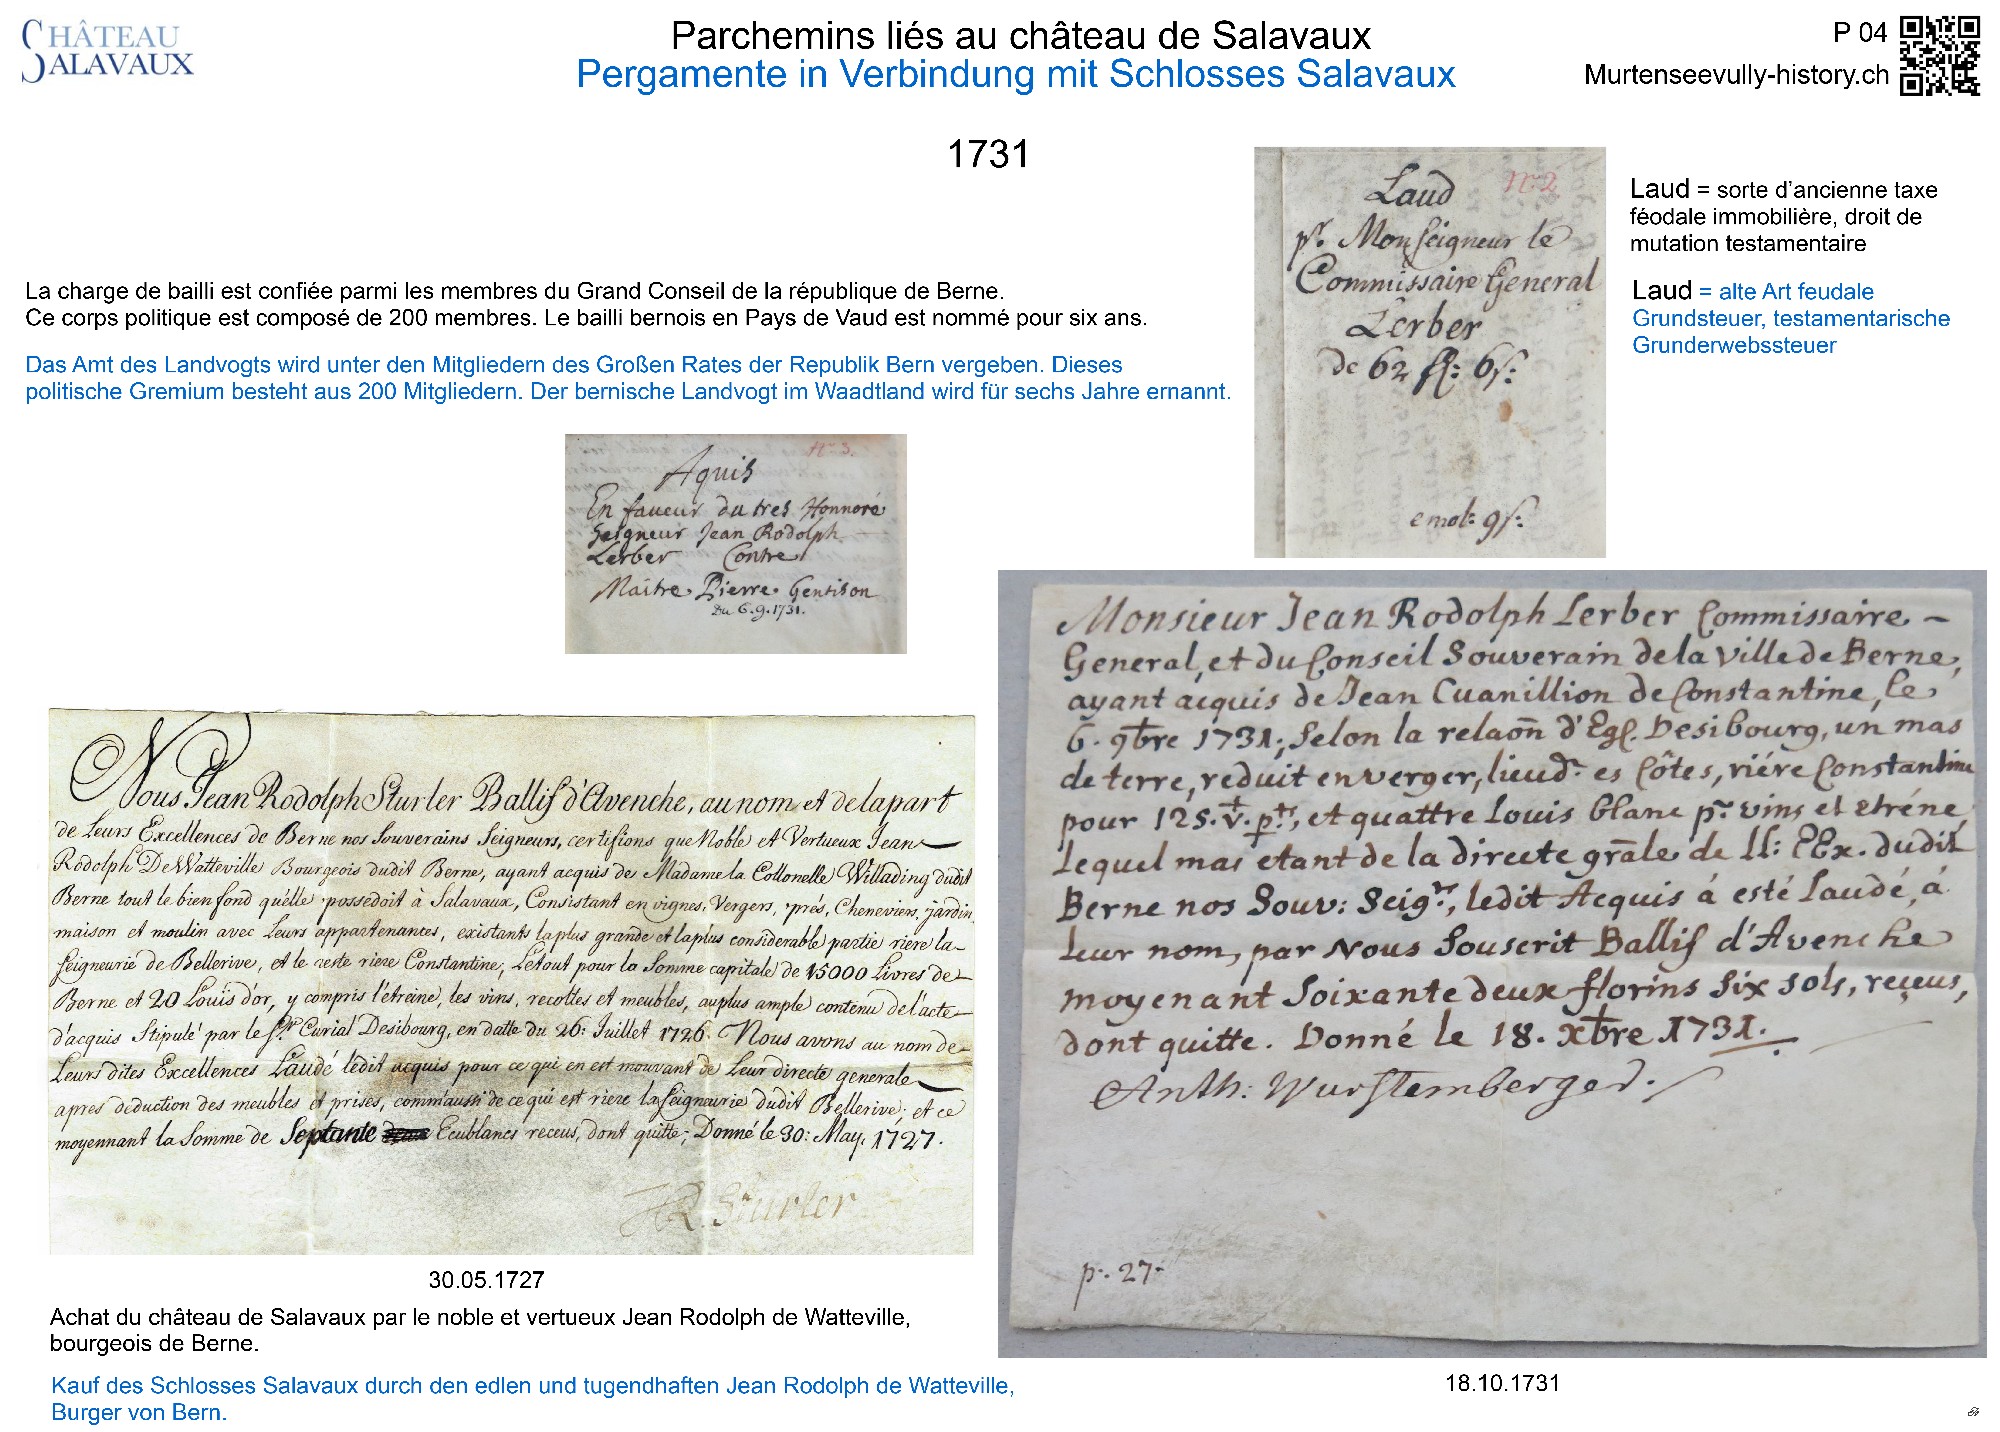 CHÂTEAU
SALAVAUX
Parchemins liés au château de Salavaux
Pergamente in Verbindung mit Schlosses Salavaux
P 04
Murtenseevully-history.ch
1731
Laud
n.º 2
pr. Monseigneur le
Commissaire General
Lerber
de 62 fl: 6s:
emol: 9s:
Laud = sorte d’ancienne taxe
féodale immobilière, droit de
mutation testamentaire
Laud = alte Art feudale
Grundsteuer, testamentarische
Grunderwebssteuer
La charge de bailli est confiée parmi les membres du Grand Conseil de la république de Berne.
Ce corps politique est composé de 200 membres. Le bailli bernois en Pays de Vaud est nommé pour six ans.
Das Amt des Landvogts wird unter den Mitgliedern des Großen Rates der Republik Bern vergeben. Dieses
politische Gremium besteht aus 200 Mitgliedern. Der bernische Landvogt im Waadtland wird für sechs Jahre ernannt.
Nº 3.
Aquis
En faveur du tres Honnoré
Seigneur Jean Rodolph
Lerber Contre
Maitre Pierre Gentison
Du 6. 9. 1731.
Nous Jean Rodolph Sturler Ballif d'Avenche, au nom et de la part
de Leurs Excellences de Berne nos Souverains Seigneurs, certifions que Noble et Vertueux Jean
Rodolph De Watteville Bourgeois dudit Berne, ayant acquis de Madame la Collonelle Willading dudit
Berne tout le bien fond qu'elle possedoit à Salavaux, Consistant en vignes, Vergers, prés, Cheneviers, jardin,
maison et moulin avec Leurs appartenances, existants la plus grande et la plus considerable partie riere la
Seigneurie de Bellerive, et le reste riere Constantine, Le tout pour la Somme capitale de 15000 Livres de
Berne et 20 Louis d'or, y compris l'etreine, les vins, recoltes et meubles, au plus ample contenu de l'acte
d'acquis Stipulé par le Sr. Curial Desibourg, en datte du 26: Juillet 1726. Nous avons au nom de
Leurs dites Excellences Laudé ledit acquis pour ce qui en est mouvant de Leur directe generale
apres deduction des meubles et prises, comm'aussi de ce qui est riere la Seigneurie dudit Bellerive; et ce
moyennant la Somme de Septante Ecublancs receus, dont quitte; Donné le 30: May, 1727.
JR. Sturler
30.05.1727
Achat du château de Salavaux par le noble et vertueux Jean Rodolph de Watteville,
bourgeois de Berne.
Kauf des Schlosses Salavaux durch den edlen und tugendhaften Jean Rodolph de Watteville,
Burger von Bern.
Monsieur Jean Rodolph Lerber Commissaire
General, et du Conseil Souverain de la ville de Berne,
ayant acquis de Jean Cuanillion de Constantine, le
6. 9bre 1731; Selon la relaõn d'Egl. Desibourg, un mas
de terre, reduit en verger, lieud. es Côtes, riére Constantine
pour 125. v. pts, et quattre Louis blanc pr. vins et etréne,
Lequel mas etant de la directe grãle de LL: EEx. dudit
Berne nos Souv: Seigrs, ledit Acquis á esté Laudé, á
Leur nom, par Nous Souscrit Ballif d'Avenche
moyenant Soixante deux florins six sols, reçeus,
dont quitte. Donné le 18. xbre 1731.
Anth: Wurstemberger.
p. 27.
18.10.1731